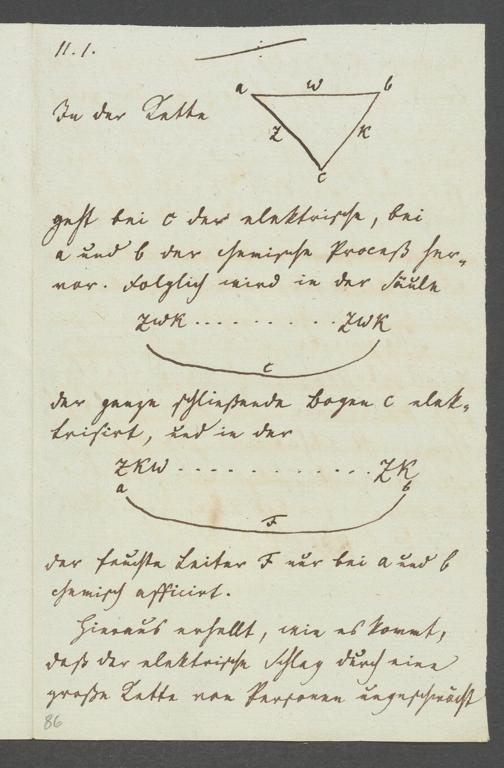 II. 1.
a w b
In der Kette
Z K
c
geht bei c der elektrische, bei
a und b der chemische Proceß her-
vor. Folglich wird in der Säule
ZWK . . . . . . . . . . ZWK
c
der ganze schließende Bogen c elek-
trisirt, und in der
ZKW . . . . . . . . . . . . . ZK
a b
F
der feuchte Leiter F nur bei a und b
chemisch afficirt.
Hieraus erhellt, wie es kommt,
daß der elektrische Schlag durch eine
große Kette von Personen ungeschwächt
86